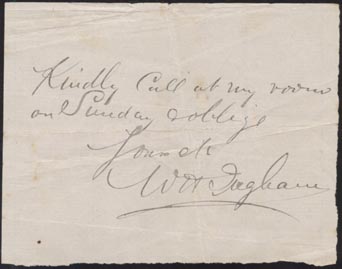 Kindly Call at my room
on Sunday & oblige
Yours &c
W H Ingham